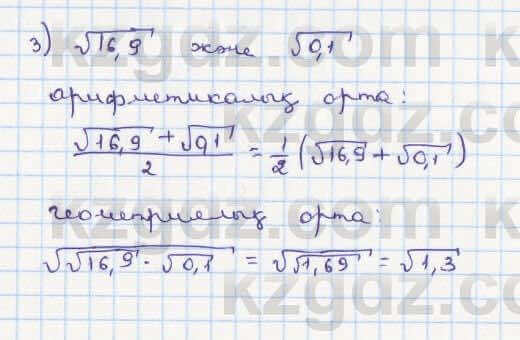 3) √16,9 және √0,1
арифметикалық орта:
(√16,9 + √0,1)/2 = 1/2 (√16,9 + √0,1)
геометриялық орта:
√(√16,9 · √0,1) = √(√1,69) = √1,3
kzgdz.com